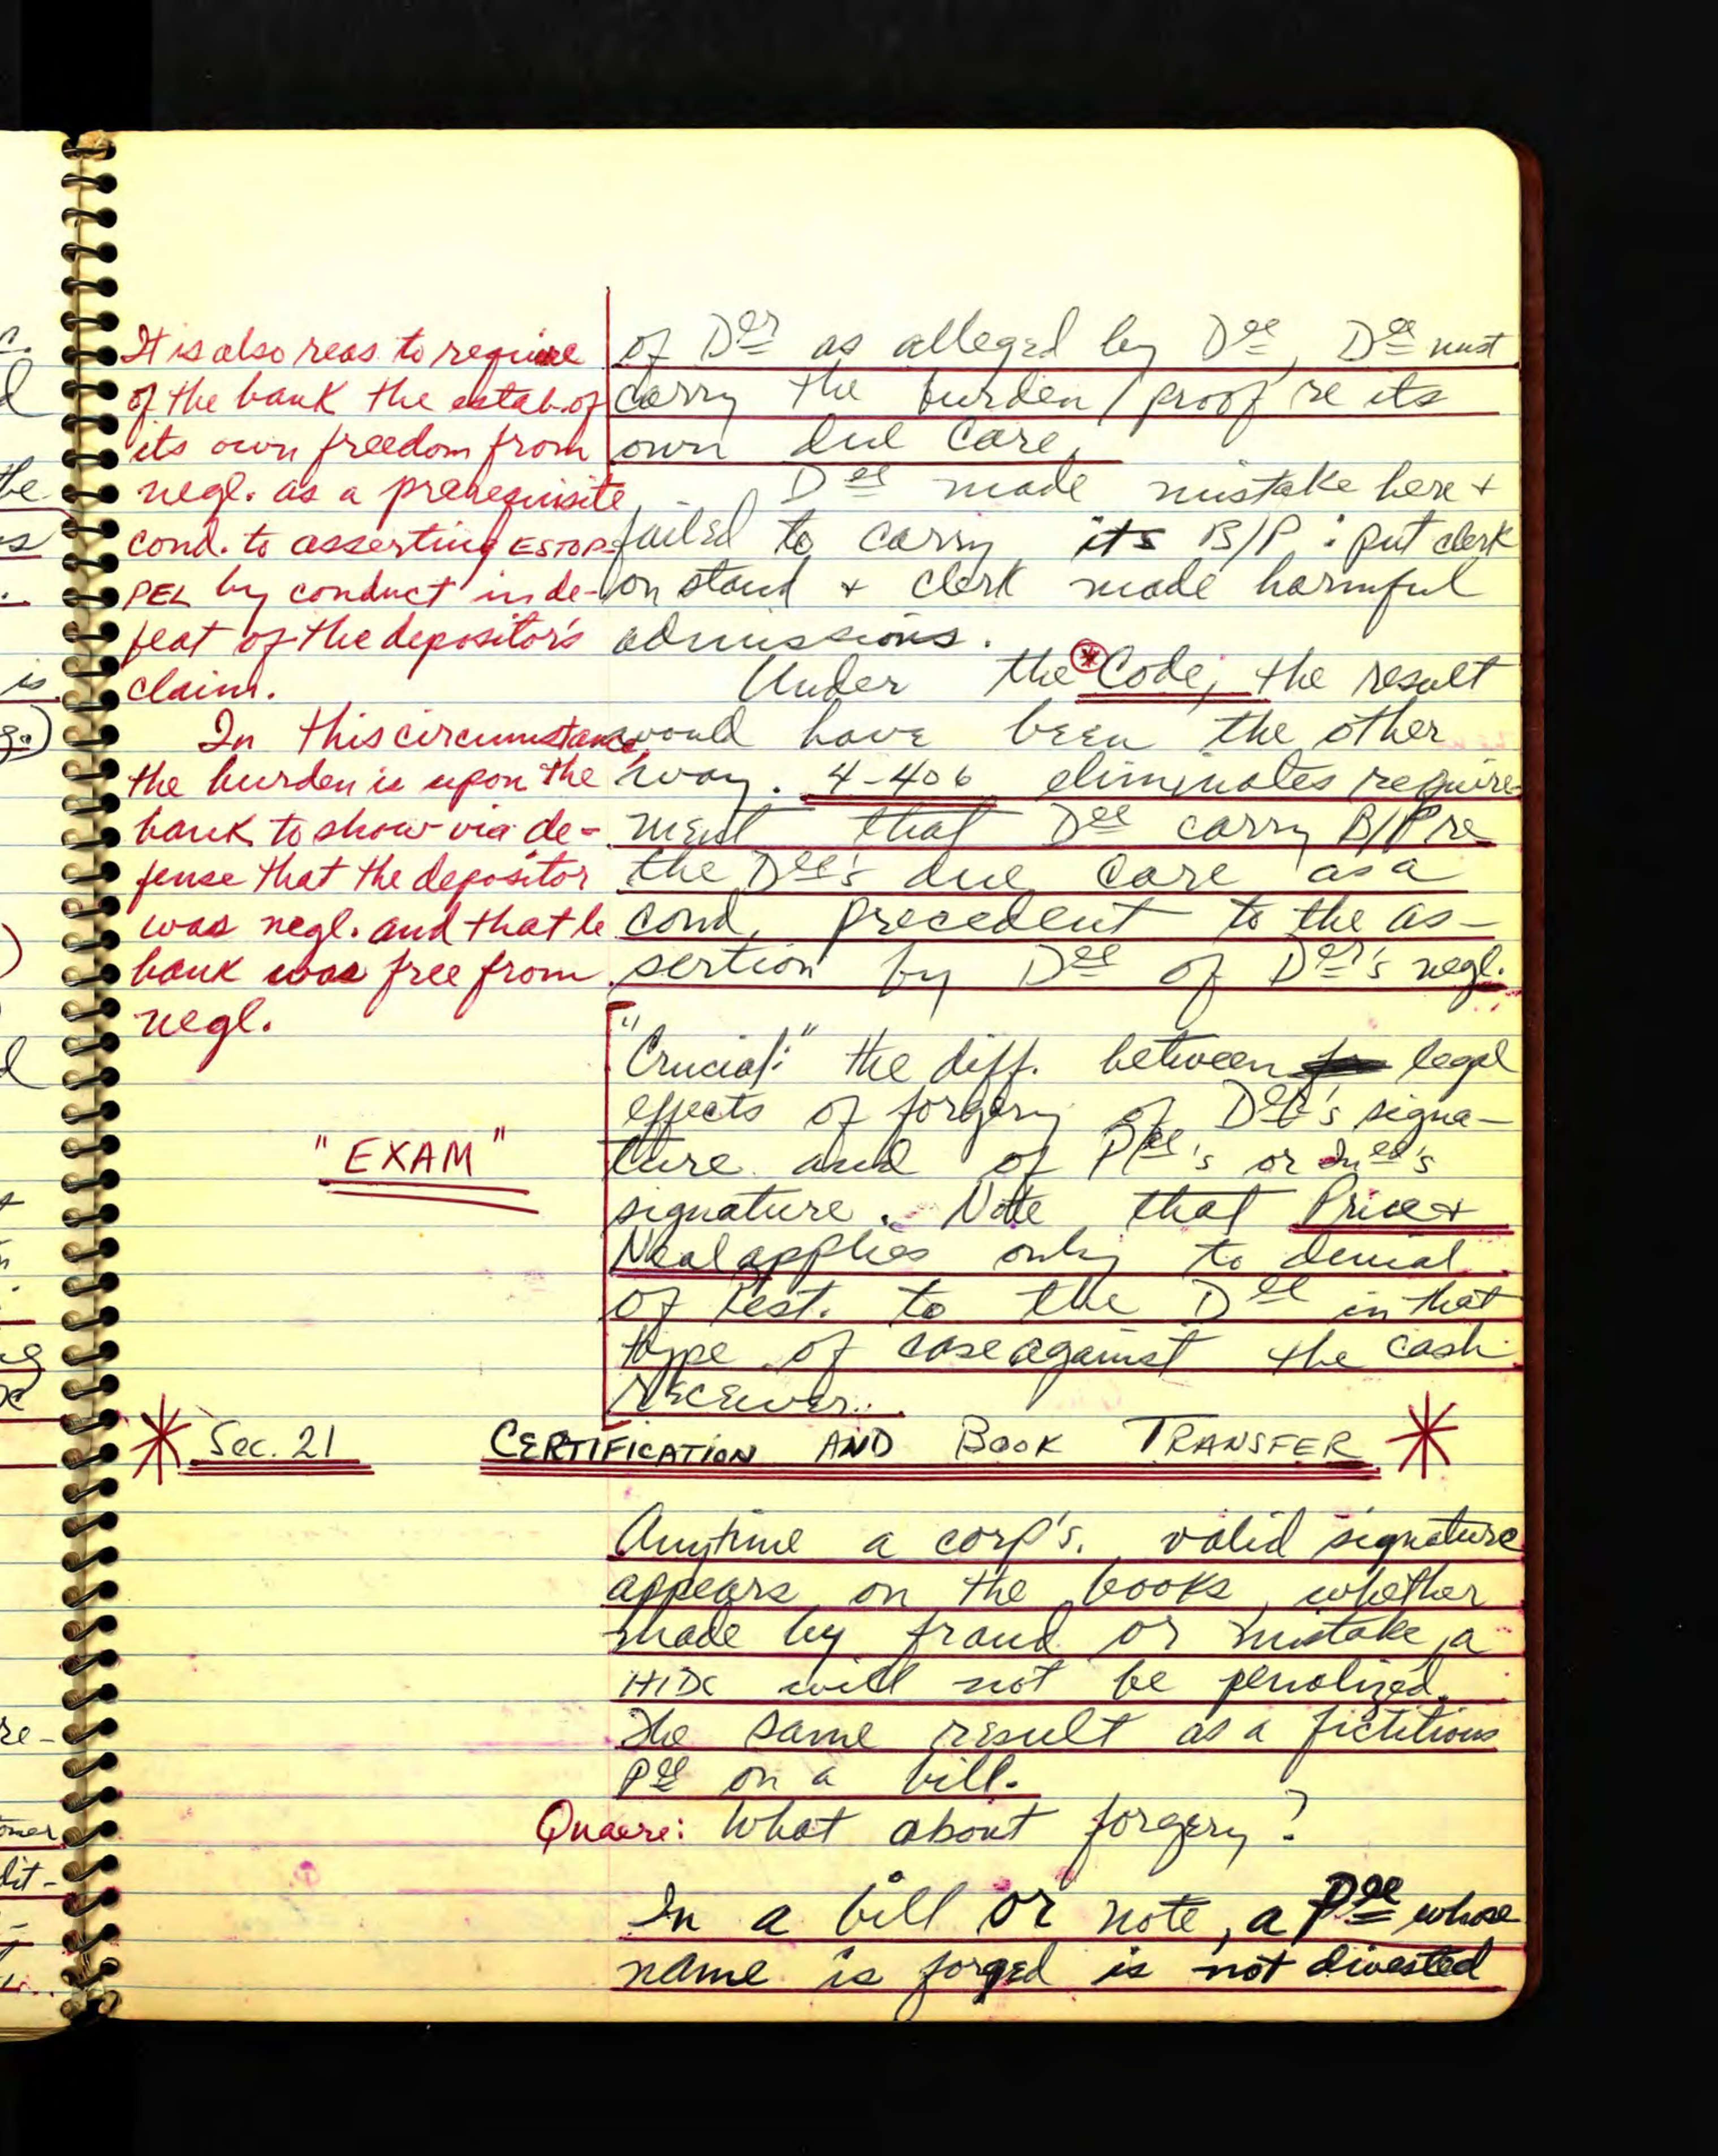 It is also reas. to require
of the bank the estab. of
its own freedom from
negl. as a prerequisite
cond. to asserting ESTOP-
PEL by conduct in de-
feat of the depositor's
claim.
In this circumstance,
the burden is upon the
bank to show via de-
fense that the depositor
was negl. and that he
bank was free from
negl.
"EXAM"
of Der as alleged by Dee, Dee must
carry the burden/proof re its
own due care.
Dee made mistake here +
failed to carry its B/P: put clerk
on stand + clerk made harmful
admissions.
Under the * Code, the result
would have been the other
way. 4-406 eliminates require-
ment that Dee carry B/P re
the Dee's due care as a
cond. precedent to the as-
sertion by Dee of Der's negl.
"Crucial:" the diff. between legal
effects of forgery of Der's signa-
ture and of Pee's or Inee's
signature. Note that Price v
Neal applies only to denial
of rest. to the Dee in that
type of case against the cash
receiver.
* Sec. 21 CERTIFICATION AND BOOK TRANSFER *
Anytime a corp's. valid signature
appears on the books, whether
made by fraud or mistake, a
HIDC will not be penalized.
The same result as a fictitious
Pee on a bill.
Quaere: What about forgery?
In a bill or note, a Pee whose
name is forged is not divested